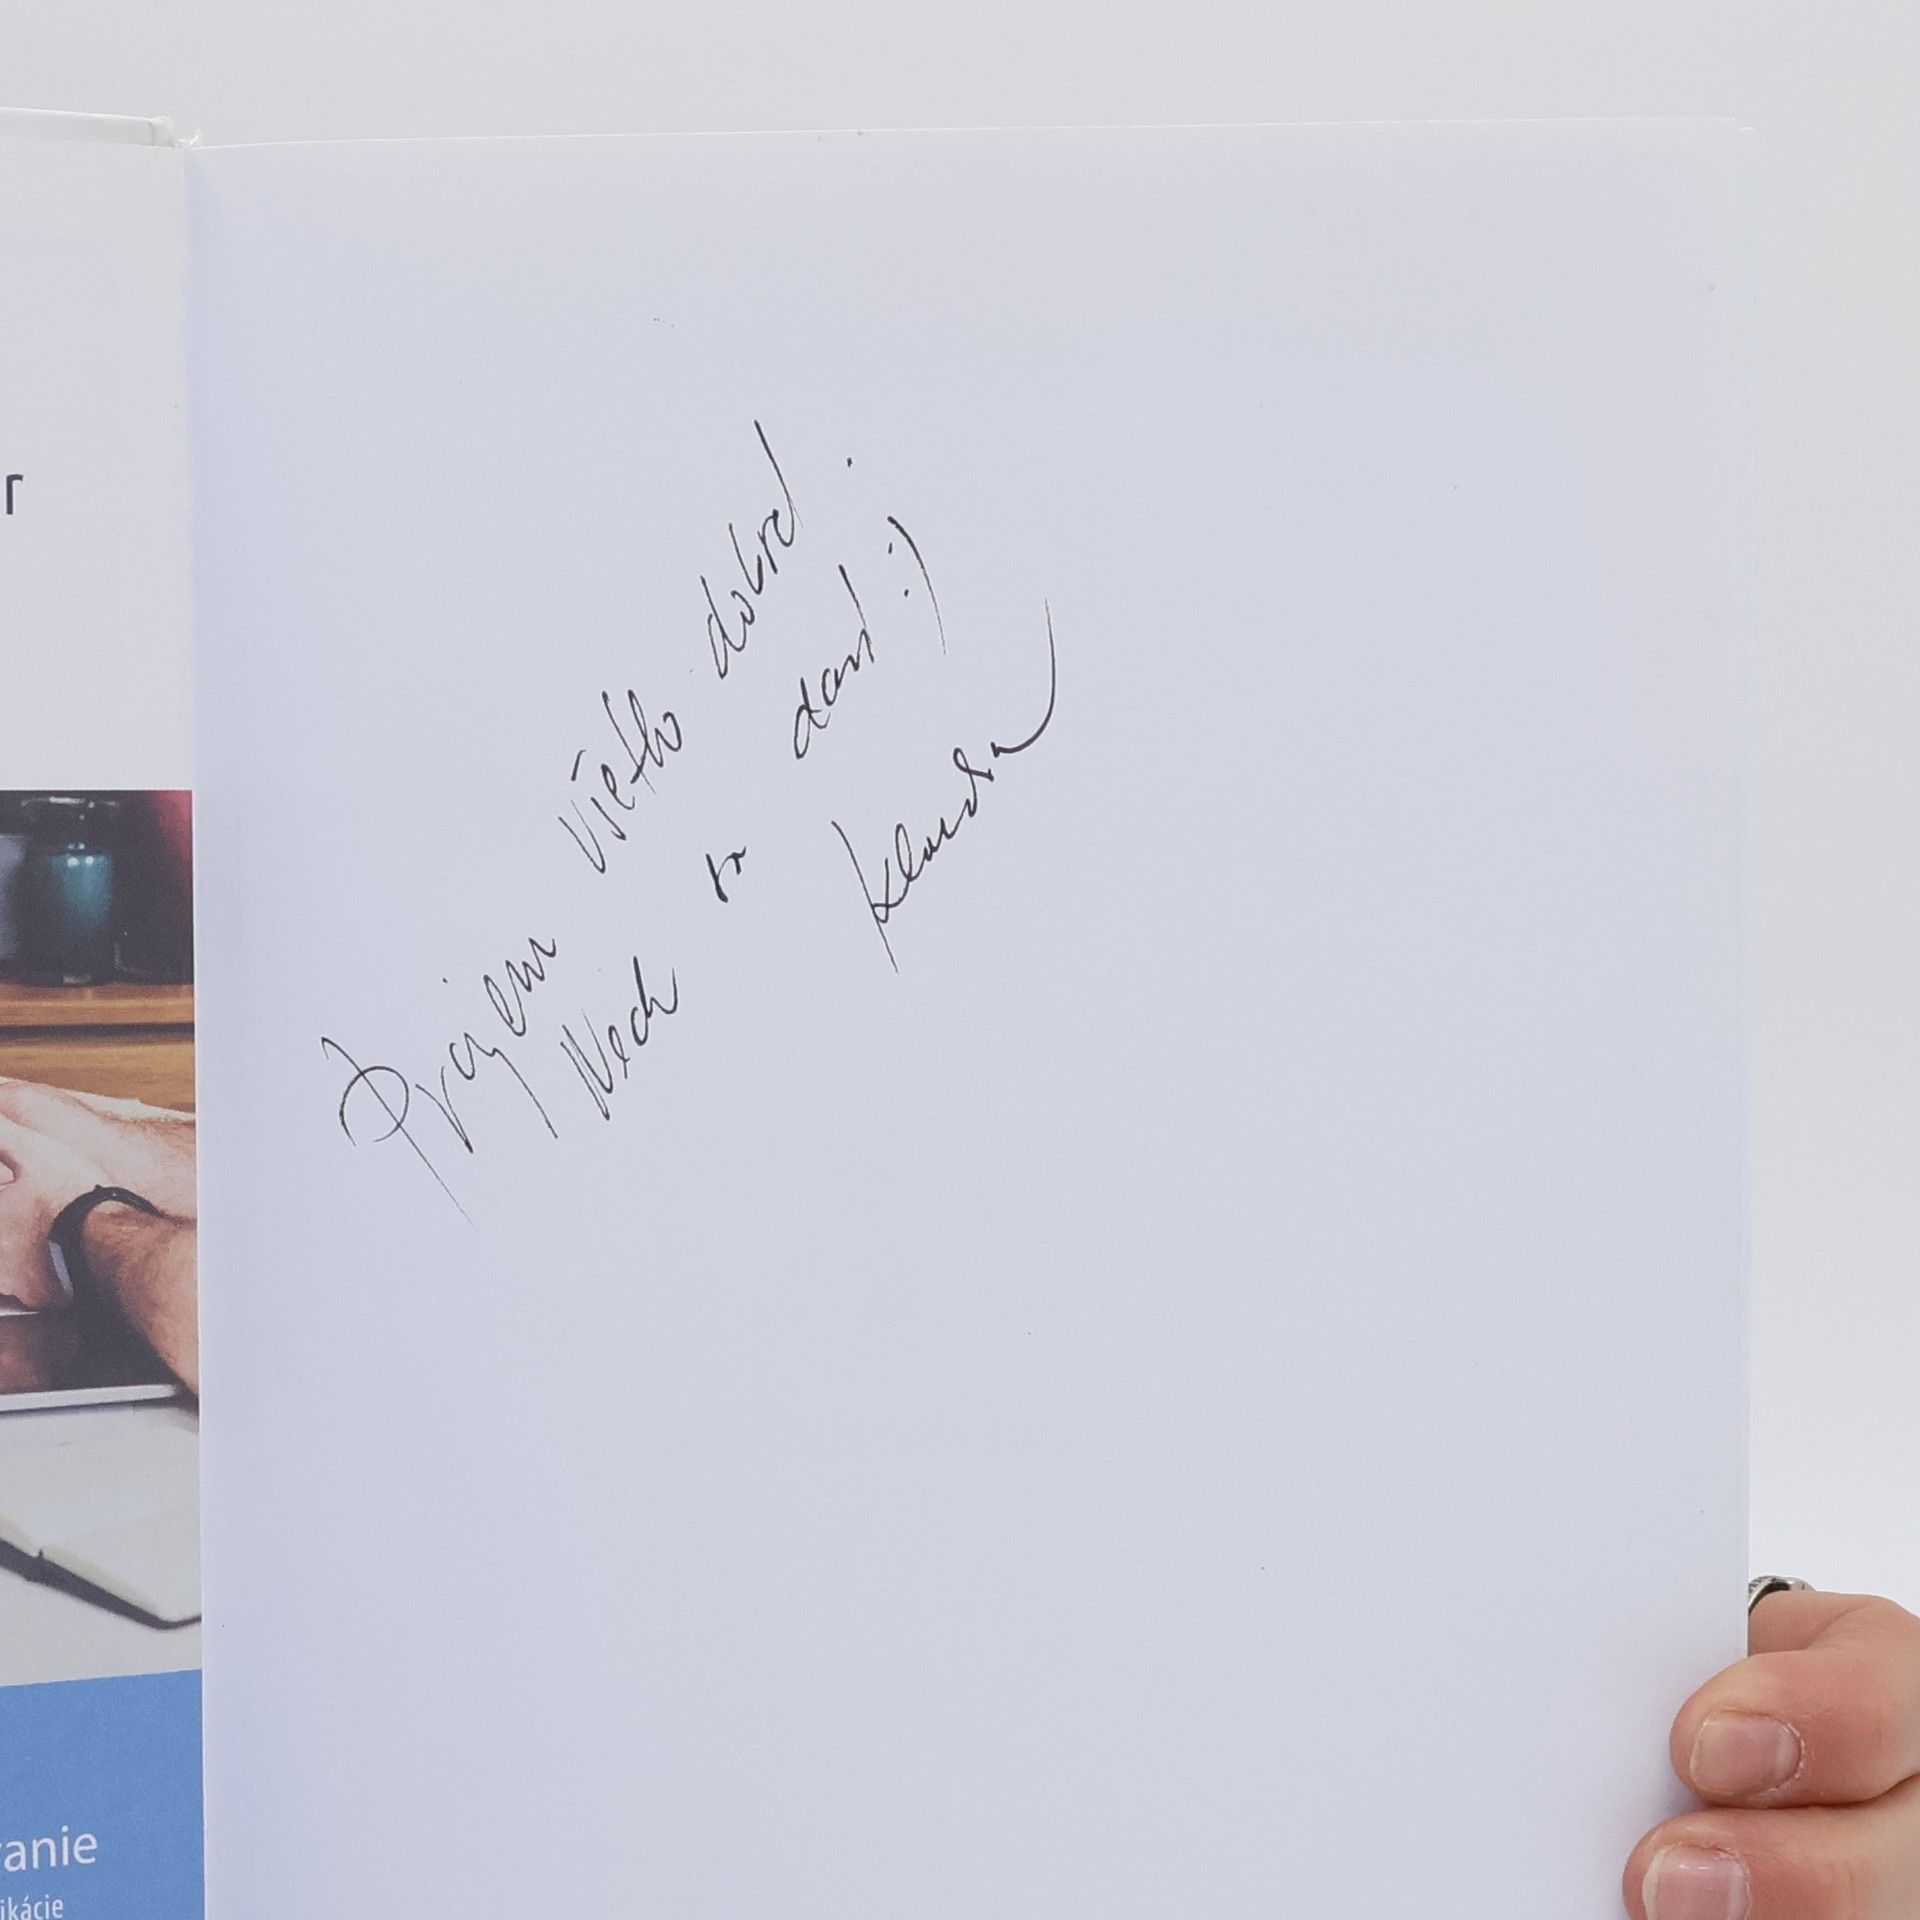 r
vanie
ikácie
Prajem všetko dobré.
Nech sa darí :)
Klaudia